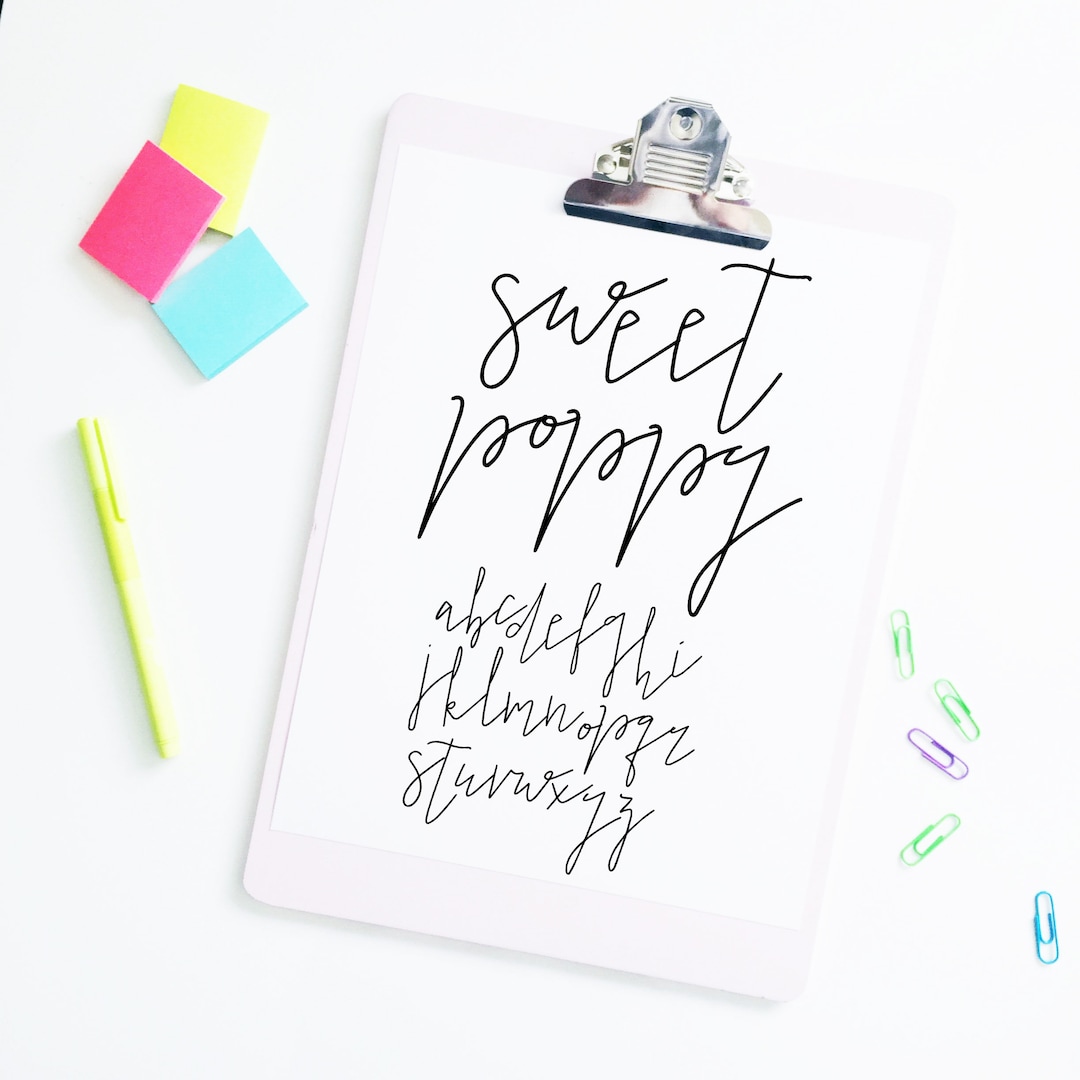 sweet
poppy
abcdefghi
jklmnopqr
stuvwxyz